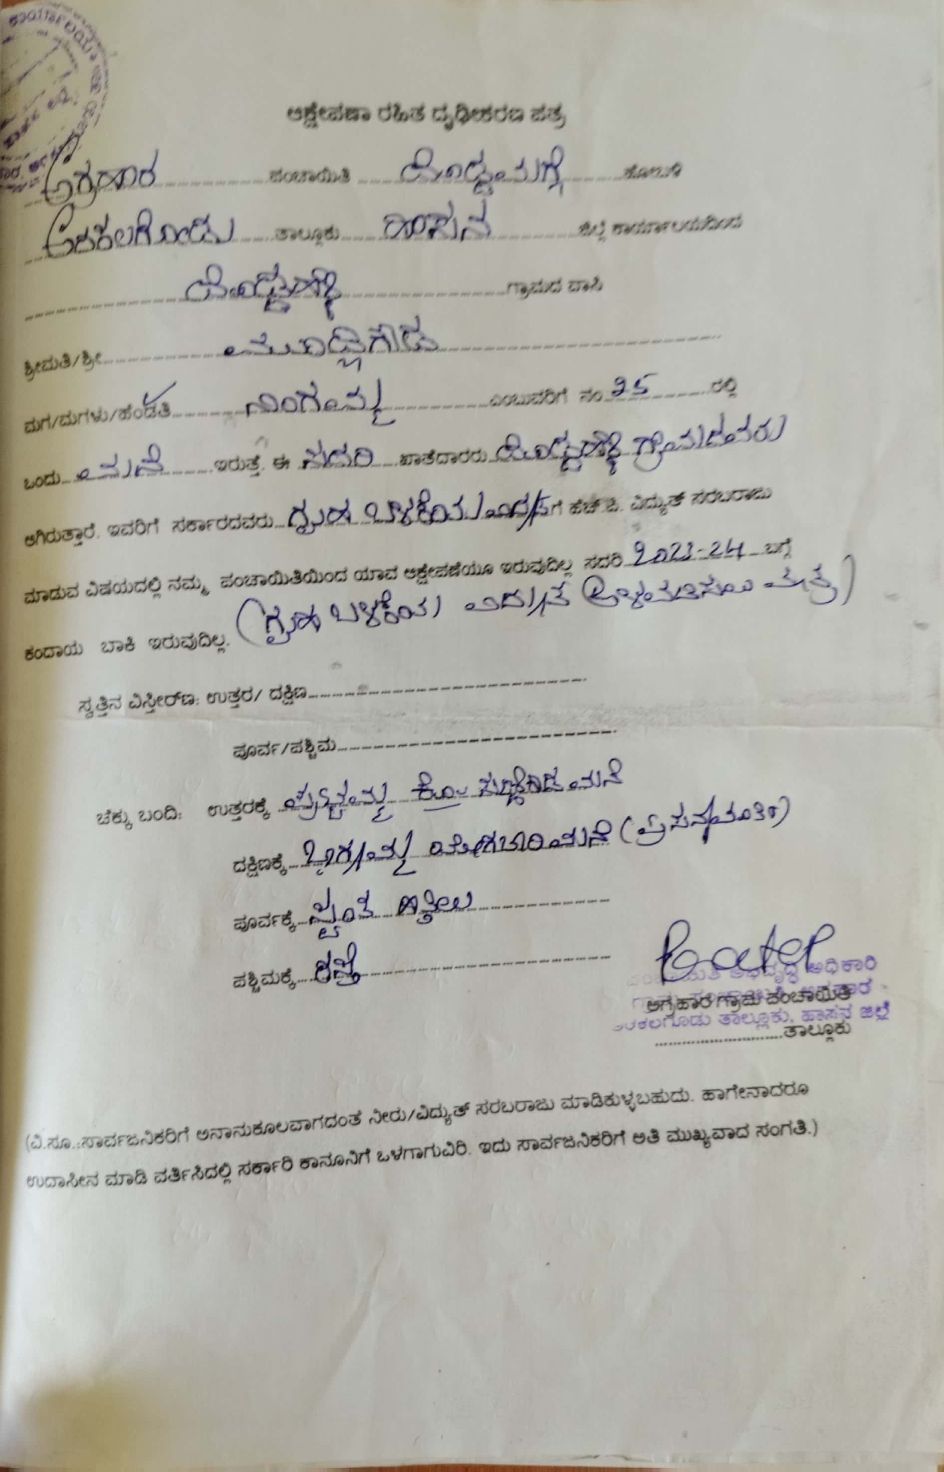 ಆಕ್ಷೇಪಣಾ ರಹಿತ ದೃಢೀಕರಣ ಪತ್ರ
ಅಗ್ರಹಾರ ಪಂಚಾಯಿತಿ ದೊಡ್ಡಮಗ್ಗೆ ಹೋಬಳಿ
ಅರಕಲಗೋಡು ತಾಲ್ಲೂಕು ಹಾಸನ ಜಿಲ್ಲೆ ಕಾರ್ಯಾಲಯದಿಂದ
ದೊಡ್ಡಹಳ್ಳಿ ಗ್ರಾಮದ ವಾಸಿ
ಶ್ರೀಮತಿ/ಶ್ರೀ
ಮಗ/ಮಗಳು/ಹೆಂಡತಿ ನಿಂಗಮ್ಮ ಎಂಬುವರಿಗೆ ನಂ 25 ರಲ್ಲಿ
ಒಂದು ಮನೆ ಇರುತ್ತೆ. ಈ ಸದರಿ ಖಾತೆದಾರರು ದೊಡ್ಡಹಳ್ಳಿ ಗ್ರಾಮದವರು
ಆಗಿರುತ್ತಾರೆ. ಇವರಿಗೆ ಸರ್ಕಾರದವರು ಗೃಹ ಬಳಕೆಯ ಗೆ ಹೆಚ್.ಪಿ. ವಿದ್ಯುತ್ ಸರಬರಾಜು
ಮಾಡುವ ವಿಷಯದಲ್ಲಿ ನಮ್ಮ ಪಂಚಾಯಿತಿಯಿಂದ ಯಾವ ಆಕ್ಷೇಪಣೆಯೂ ಇರುವುದಿಲ್ಲ ಸದರಿ 2023-24 ಬಗ್ಗೆ
ಕಂದಾಯ ಬಾಕಿ ಇರುವುದಿಲ್ಲ. (ಗೃಹ ಬಳಕೆಯ ವಿದ್ಯುತ್ ಅಳವಡಿಸಲು ಮಾತ್ರ)
ಸ್ವತ್ತಿನ ವಿಸ್ತೀರ್ಣ: ಉತ್ತರ/ ದಕ್ಷಿಣ
ಪೂರ್ವ/ಪಶ್ಚಿಮ
ಚೆಕ್ಕು ಬಂದಿ: ಉತ್ತರಕ್ಕೆ ಪುಟ್ಟಮ್ಮ ಕೋಂ ಮನೆ
ದಕ್ಷಿಣಕ್ಕೆ ಭಾಗ್ಯಮ್ಮ ಮನೆ
ಪೂರ್ವಕ್ಕೆ ಸ್ವಂತ ಹಿತ್ತಲು
ಪಶ್ಚಿಮಕ್ಕೆ ರಸ್ತೆ
ಪಂಚಾಯಿತಿ ಅಭಿವೃದ್ಧಿ ಅಧಿಕಾರಿ
ಅಗ್ರಹಾರ ಗ್ರಾಮ ಪಂಚಾಯಿತಿ
ಅರಕಲಗೂಡು ತಾಲ್ಲೂಕು, ಹಾಸನ ಜಿಲ್ಲೆ
ತಾಲ್ಲೂಕು
(ವಿ.ಸೂ.:ಸಾರ್ವಜನಿಕರಿಗೆ ಅನಾನುಕೂಲವಾಗದಂತೆ ನೀರು/ವಿದ್ಯುತ್ ಸರಬರಾಜು ಮಾಡಿಕುಳ್ಳಬಹುದು. ಹಾಗೇನಾದರೂ
ಉದಾಸೀನ ಮಾಡಿ ವರ್ತಿಸಿದಲ್ಲಿ ಸರ್ಕಾರಿ ಕಾನೂನಿಗೆ ಒಳಗಾಗುವಿರಿ. ಇದು ಸಾರ್ವಜನಿಕರಿಗೆ ಅತಿ ಮುಖ್ಯವಾದ ಸಂಗತಿ.)